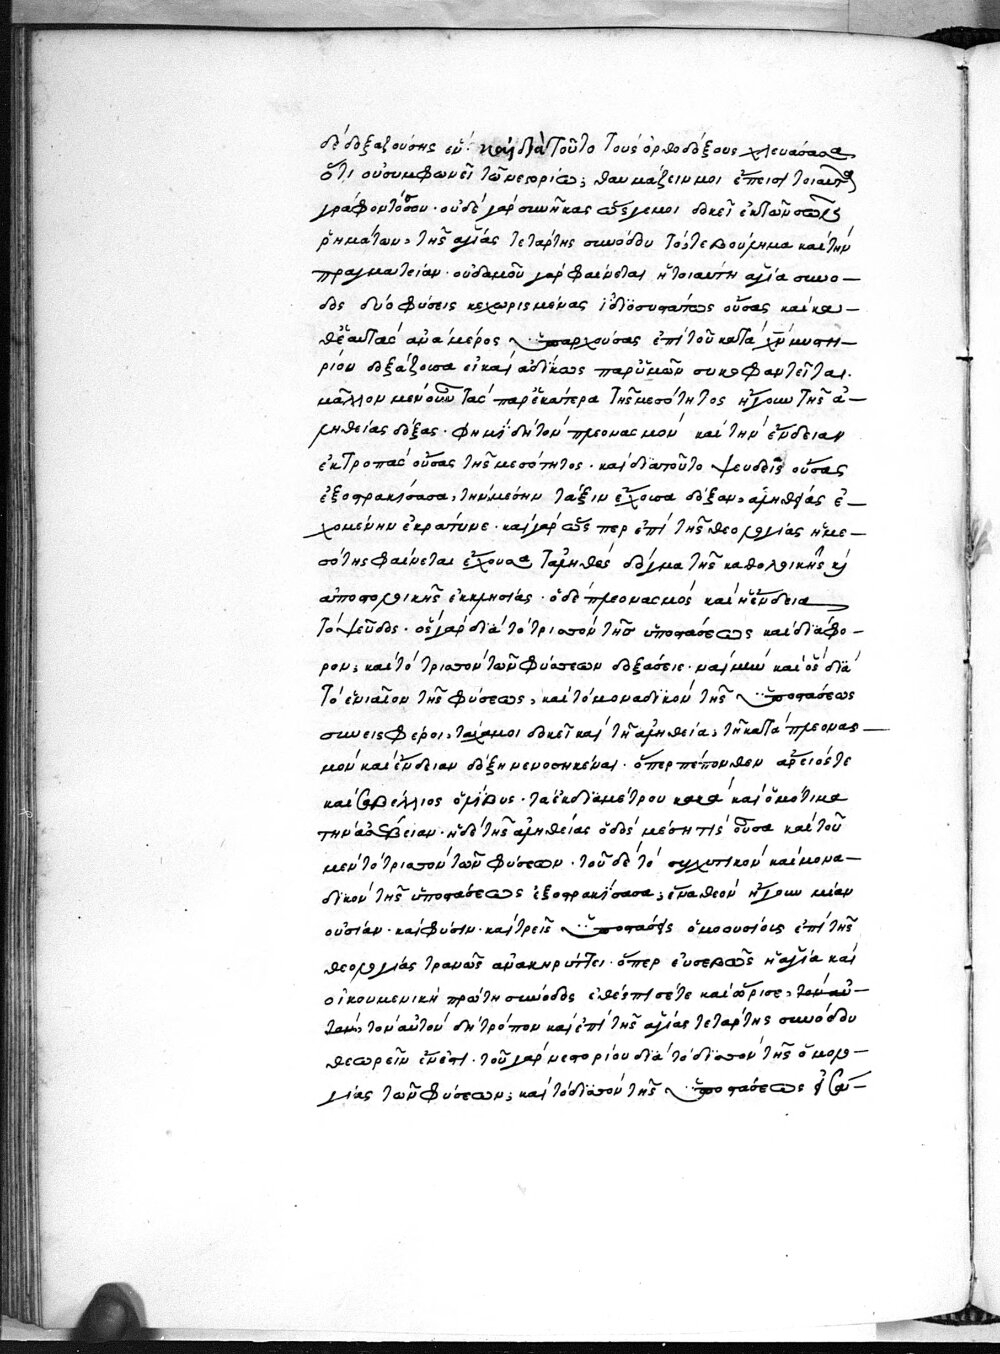 δὲ δοξαζούσης ἐν! καὶ διὰ τοῦτο τοὺς ὀρθοδόξους χλευάσασα
ὅτι οὐ συμφωνεῖ τῷ νεστορίῳ; θαυμάζειν μοι ἔπεισι τοιαῦτα
γράφοντός σου· οὐδὲ γὰρ συνῆκας ὥς γέ μοι δοκεῖ ἐκ τῶν σῶν
ῥημάτων, τῆς ἁγίας τετάρτης συνόδου τό, τε βούλημα καὶ τὴν
πραγματείαν· οὐδαμοῦ γὰρ φαίνεται ἡ τοιαύτη ἁγία συνο–
δος δύο φύσεις κεχωρισμένας ἰδιοσυστάτως οὔσας καὶ κα–
θ' ἑαυτὰς ἀνὰ μέρος ὑπαρχούσας ἐπὶ τοῦ κατὰ χν μυστη–
ρίου δοξάζουσα εἰ καὶ ἀδίκως παρ' ὑμῶν συκοφαντεῖται.
μᾶλλον μὲν οὖν τὰς παρ' ἑκάτερα τῆς μεσότητος ἤγουν τῆς ἀ–
ληθείας δόξας· φημὶ δὴ τὸν πλεονασμὸν καὶ τὴν ἔνδειαν
ἐκτροπὰς οὔσας τῆς μεσότητος· καὶ διὰ τοῦτο ψευδεῖς οὔσας
ἐξοστρακίσασα, τὴν μέσην τάξιν ἔχουσα δόξαν, ἀληθείας ἐ–
χομένην ἐκράτυνε· καὶ γὰρ ὥσπερ ἐπὶ τῆς θεολογίας ἡ με–
σότης φαίνεται ἔχουσα τἀληθὲς δόγμα τῆς καθολικῆς κ
ἀποστολικῆς ἐκκλησίας· ὁ δὲ πλεονασμὸς καὶ ἡ ἔνδεια
τὸ ψεῦδος· ὡς γὰρ διὰ τὸ τριαττὸν τῆς ὑποστάσεως καὶ διάφο–
ρον; καὶ τὸ τριαττὸν τῶν φύσεων δοξάσειε· ναὶ μὴν καὶ ὃς διὰ
τὸ ἑνιαῖον τῆς φύσεως, καὶ τὸ μοναδικὸν τῆς ὑποστάσεως
συνεισφέροι, τάχα μοι δοκεῖ καὶ τῇ ἀληθείᾳ, τῇ κατὰ πλεονασ–
μὸν καὶ ἔνδειαν δόξῃ νενοσηκέναι· ὅπερ πέπονθεν ἄρειός τε
καὶ σαβέλλιος ὁ λίβυς· τὰ ἐκ διαμέτρου κακὰ καὶ ὁμότιμα
τὴν ἀσέβειαν· ἡ δὲ τῆς ἀληθείας ὁδὸς μέση τίς οὖσα καὶ τοῦ
μὲν τὸ τριαττὸν τῶν φύσεων· τοῦ δὲ τὸ συγχυτικὸν καὶ μονα–
δικὸν τῆς ὑποστάσεως ἐξοστρακίσασα; ἕνα θεὸν ἤγουν μίαν
οὐσίαν· καὶ φύσιν· καὶ τρεῖς ὑποστάσεις ὁμοουσίους ἐπὶ τῆς
θεολογίας τρανῶς ἀνακηρύττει· ὅπερ εὐσεβῶς ἡ ἁγία καὶ
οἰκουμενικὴ πρώτη σύνοδος ἐθέσπισέ τε καὶ ὥρισε, τὸν αὐ–
τὸν, τὸν αὐτὸν δὴ τρόπον καὶ ἐπὶ τῆς ἁγίας τετάρτης συνόδου
θεωρεῖν ἔνεστι· τοῦ γὰρ νεστορίου διὰ τὸ διττὸν τῆς ὁμολο–
γίας τῶν φύσεων; καὶ τὸ διττὸν τῆς ὑποστάσεως